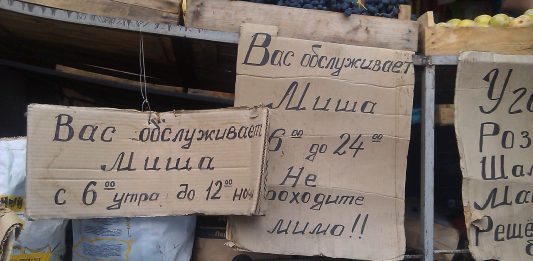 Вас обслуживает
Миша
с 6⁰⁰ утра до 12⁰⁰ ноч
Вас обслуживает
Миша
6⁰⁰ до 24⁰⁰
Не
проходите
мимо!!
Уго
Роз
Шал
Ма
Решё